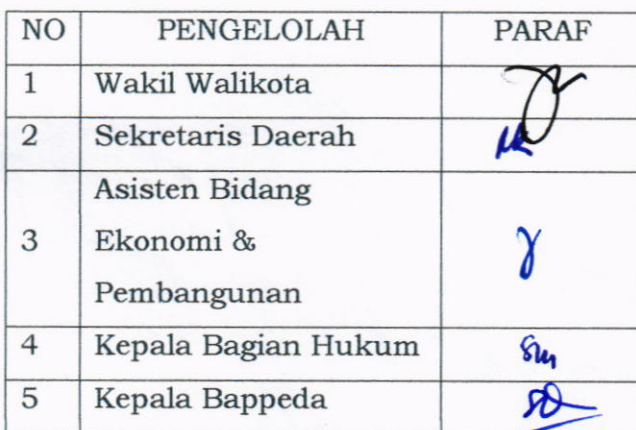 NO PENGELOLAH PARAF
1 Wakil Walikota
2 Sekretaris Daerah
Asisten Bidang
3 Ekonomi &
Pembangunan
4 Kepala Bagian Hukum
5 Kepala Bappeda